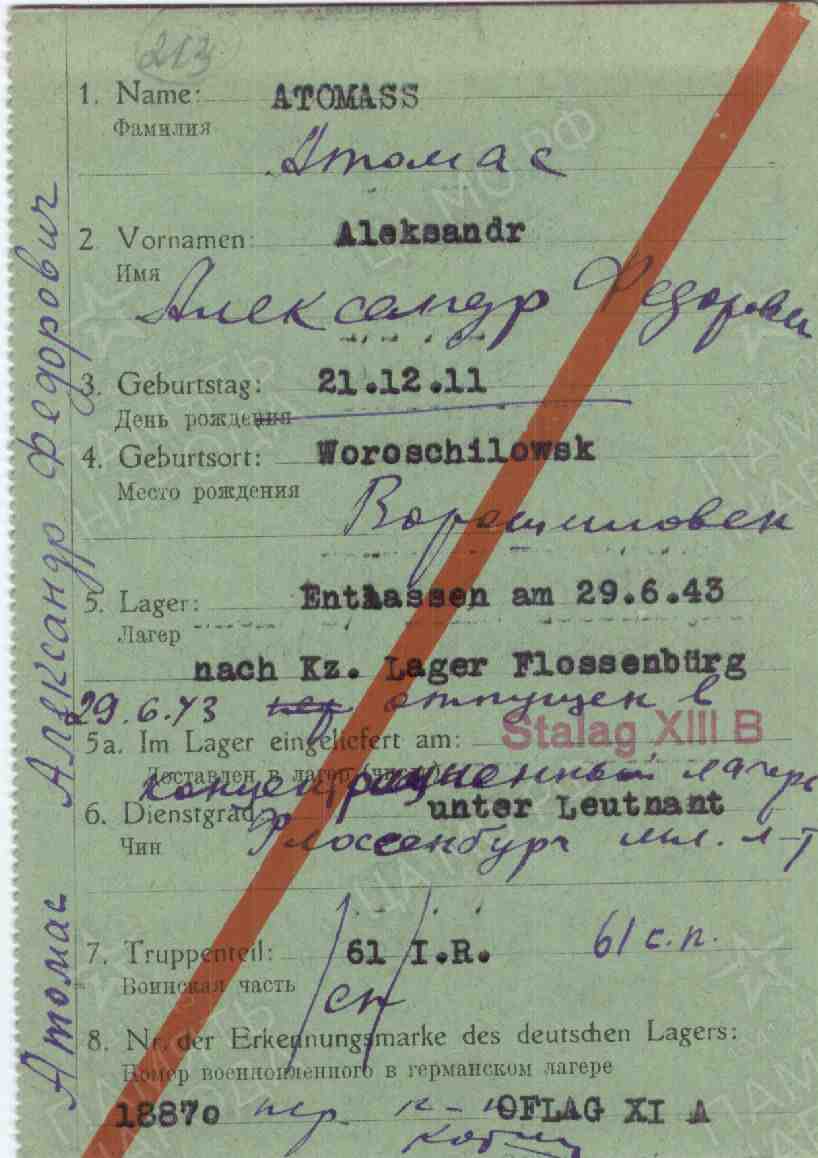 213
1. Name: ATOMASS
Фамилия
Атомас
2 Vornamen: Aleksandr
Имя
Александр Федорович
3. Geburtstag: 21.12.11
День рождения
4. Geburtsort: Woroschilowsk
Место рождения
Ворошиловск
5. Lager: Entlassen am 29.6.43
Лагер
nach Kz. Lager Flossenbürg
29.6.43 отпущен в
5a. Im Lager eingeliefert am: Stalag XIII B
Доставлен в лагер
концентрационный лагерь
6. Dienstgrad: unter Leutnant
Чин Флоссенбург мл. л-т
7. Truppenteil: 61 I.R. 61 с.п.
Воинская часть
сп
8. Nr. der Erkennungsmarke des deutschen Lagers:
Номер военнопленного в германском лагере
18870 OFLAG XI A
Атомас Александр Федорович